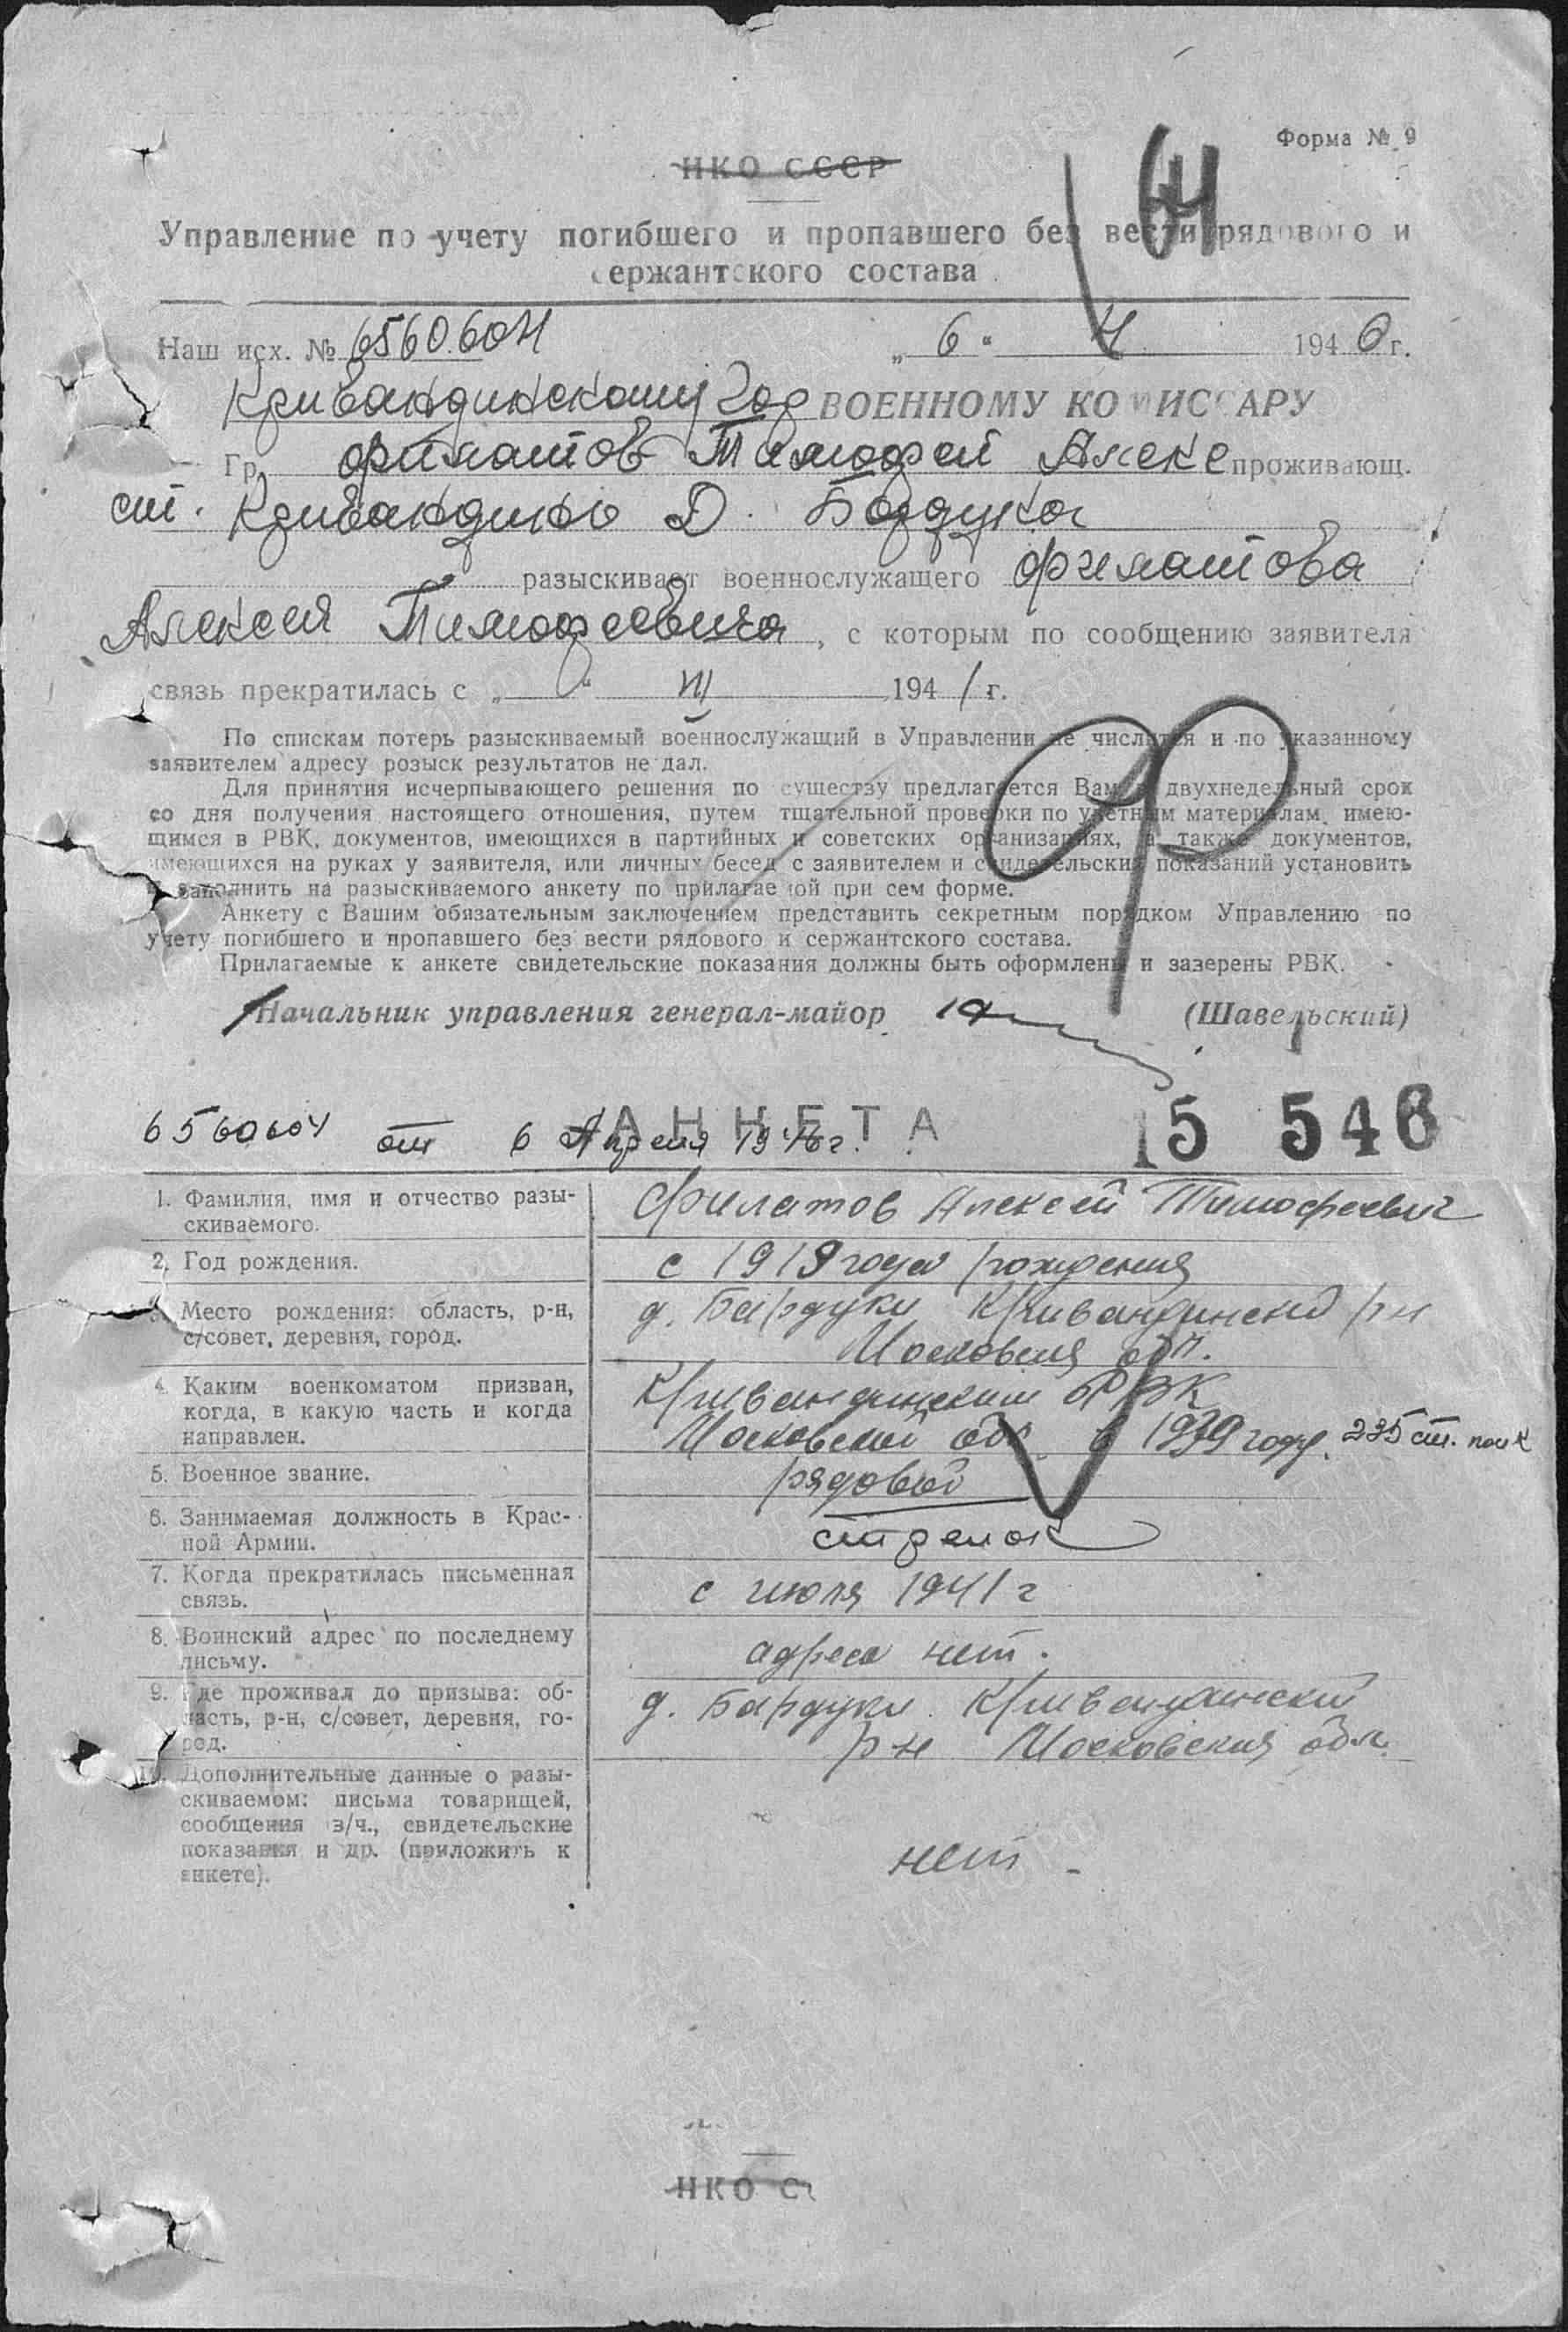 Форма № 9
64
НКО СССР
Управление по учету погибшего и пропавшего без вести рядового и
сержантского состава
Наш исх. № 6560604 „ 6 “ 4 1946 г.
Кривандинскому ВОЕННОМУ КОМИССАРУ
Гр. Филатов Тимофей Алекс проживающ.
ст. Кривандино Д. Бардуки
разыскивает военнослужащего Филатова
Алексея Тимофеевича, с которым по сообщению заявителя
связь прекратилась с „ “ 1941 г.
По спискам потерь разыскиваемый военнослужащий в Управлении не числится и по указанному
заявителем адресу розыск результатов не дал.
Для принятия исчерпывающего решения по существу предлагается Вам в двухнедельный срок
со дня получения настоящего отношения, путем тщательной проверки по учетным материалам, имею-
щимся в РВК, документов, имеющихся в партийных и советских организациях, а также документов,
имеющихся на руках у заявителя, или личных бесед с заявителем и свидетельских показаний установить
и заполнить на разыскиваемого анкету по прилагаемой при сем форме.
Анкету с Вашим обязательным заключением представить секретным порядком Управлению по
учету погибшего и пропавшего без вести рядового и сержантского состава.
Прилагаемые к анкете свидетельские показания должны быть оформлены и заверены РВК.
Начальник управления генерал-майор (Шавельский)
АНКЕТА
15 546
6560604 от 6 Апреля 1946 г.
1. Фамилия, имя и отчество разы-
скиваемого.
Филатов Алексей Тимофеевич
2. Год рождения.
с 1919 года рождения
3. Место рождения: область, р-н,
с/совет, деревня, город.
д. Бардуки Кривандинский р-н
Московская обл.
4. Каким военкоматом призван,
когда, в какую часть и когда
направлен.
Кривандинским РВК
Московской обл. в 1939 году. 235 ст. полк
5. Военное звание.
рядовой
6. Занимаемая должность в Крас-
ной Армии.
стрелок
7. Когда прекратилась письменная
связь.
с июля 1941 г
8. Воинский адрес по последнему
письму.
адреса нет.
9. Где проживал до призыва: об-
ласть, р-н, с/совет, деревня, го-
род.
д. Бардуки Кривандинский
р-н Московская обл.
10. Дополнительные данные о разы-
скиваемом: письма товарищей,
сообщения в/ч., свидетельские
показания и др. (приложить к
анкете).
нет
НКО С
ПАМЯТЬ
НАРОДА
ЦАМО РФ